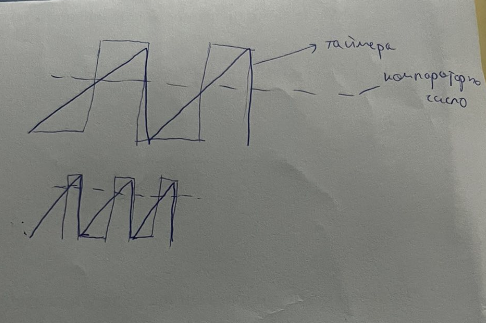 таймера
компараторно
число